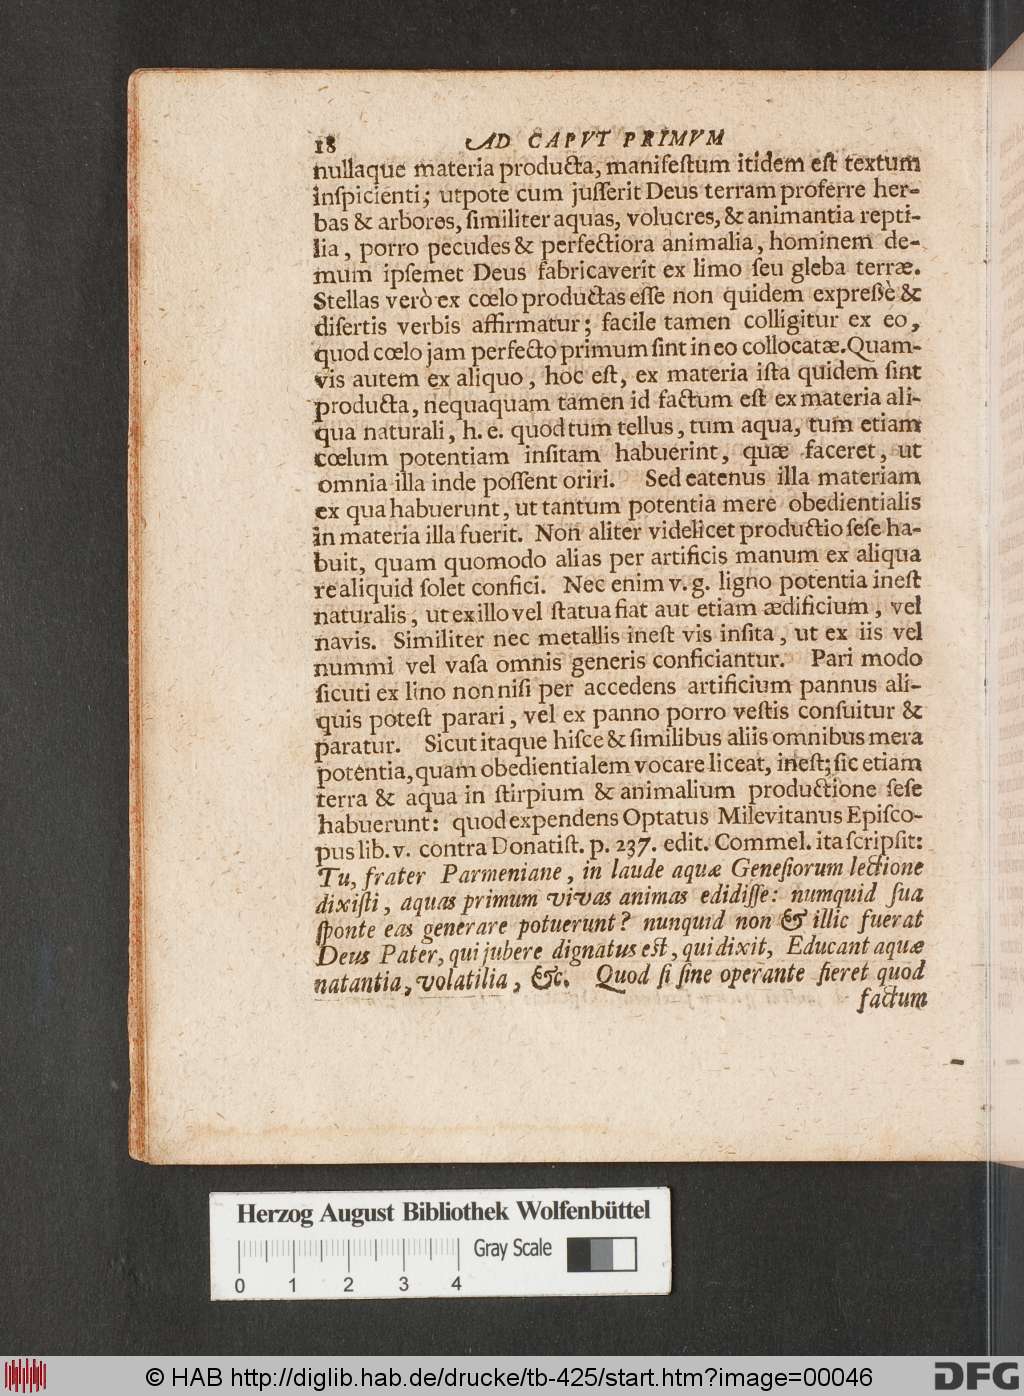 18 AD CAPVT PRIMVM
nullaque materia producta, manifestum itidem est textum
inspicienti; utpote cum jusserit Deus terram proferre her-
bas & arbores, similiter aquas, volucres, & animantia repti-
lia, porro pecudes & perfectiora animalia, hominem de-
mum ipsemet Deus fabricaverit ex limo seu gleba terræ.
Stellas verò ex cœlo productas esse non quidem expreßè &
disertis verbis affirmatur; facile tamen colligitur ex eo,
quod cœlo jam perfecto primum sint in eo collocatæ. Quam-
vis autem ex aliquo, hoc est, ex materia ista quidem sint
producta, nequaquam tamen id factum est ex materia ali-
qua naturali, h. e. quod tum tellus, tum aqua, tum etiam
cœlum potentiam insitam habuerint, quæ faceret, ut
omnia illa inde possent oriri. Sed eatenus illa materiam
ex qua habuerunt, ut tantum potentia mere obedientialis
in materia illa fuerit. Non aliter videlicet productio sese ha-
buit, quam quomodo alias per artificis manum ex aliqua
re aliquid solet confici. Nec enim v. g. ligno potentia inest
naturalis, ut ex illo vel statua fiat aut etiam ædificium, vel
navis. Similiter nec metallis inest vis insita, ut ex iis vel
nummi vel vasa omnis generis conficiantur. Pari modo
sicuti ex lino non nisi per accedens artificium pannus ali-
quis potest parari, vel ex panno porro vestis consuitur &
paratur. Sicut itaque hisce & similibus aliis omnibus mera
potentia, quam obedientialem vocare liceat, inest; sic etiam
terra & aqua in stirpium & animalium productione sese
habuerunt: quod expendens Optatus Milevitanus Episco-
pus lib. v. contra Donatist. p. 237. edit. Commel. ita scripsit:
Tu, frater Parmeniane, in laude aquæ Genesiorum lectione
dixisti, aquas primum vivas animas edidisse: numquid sua
sponte eas generare potuerunt? nunquid non & illic fuerat
Deus Pater, qui jubere dignatus est, qui dixit, Educant aquæ
natantia, volatilia, &c. Quod si sine operante fieret quod
factum
Herzog August Bibliothek Wolfenbüttel
Gray Scale
0 1 2 3 4
© HAB http://diglib.hab.de/drucke/tb-425/start.htm?image=00046
DFG